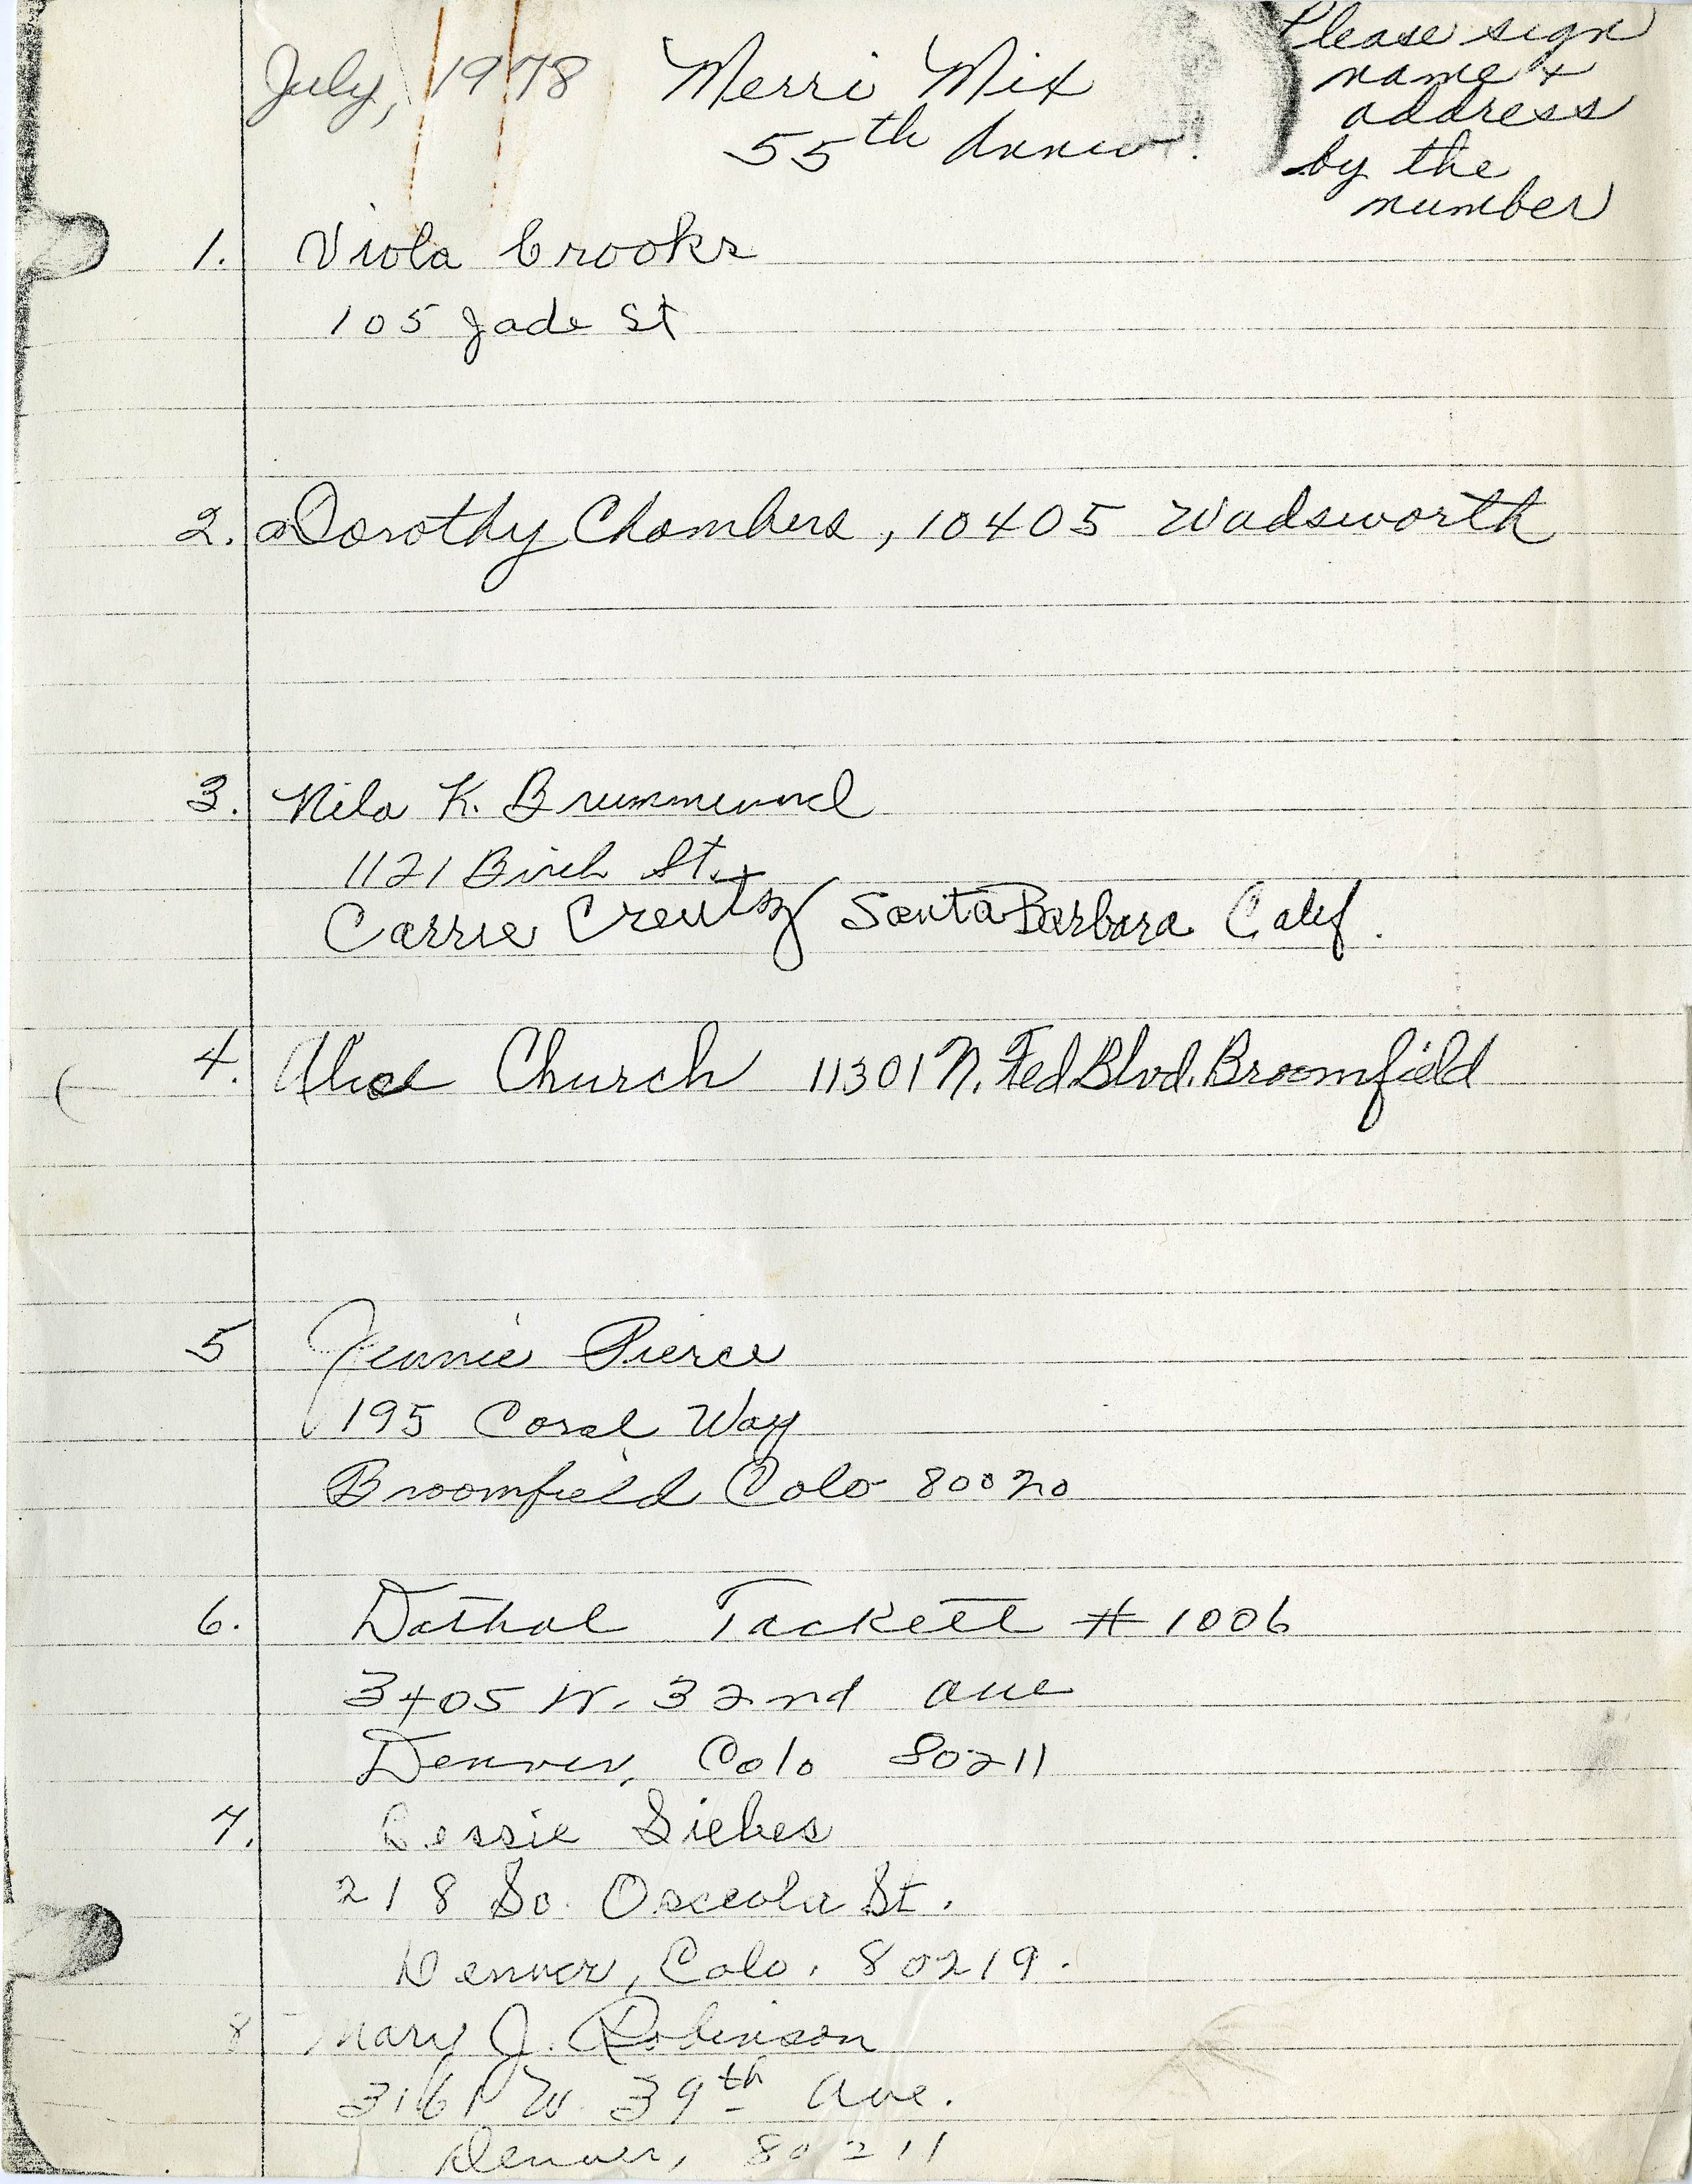 July, 1978 Merri Mix
55th Anniv.
Please sign
name +
address
by the
number
1. Viola Crooks
105 Jade St
2. Dorothy Chambers, 10405 Wadsworth
3. Nila K. Brummund
1121 Birch St.
Carrie Creutz Santa Barbara Calif.
4. Alice Church 11301 N. Fed. Blvd. Broomfield
5 Jennie Pierce
195 Coral Way
Broomfield Colo 80020
6. Dathal Tackett #1006
3405 W. 32nd Ave
Denver, Colo 80211
7. Bessie Siebes
218 So. Osceola St.
Denver, Colo. 80219.
8 Mary J. Robinson
3161 W. 39th Ave.
Denver, 80211